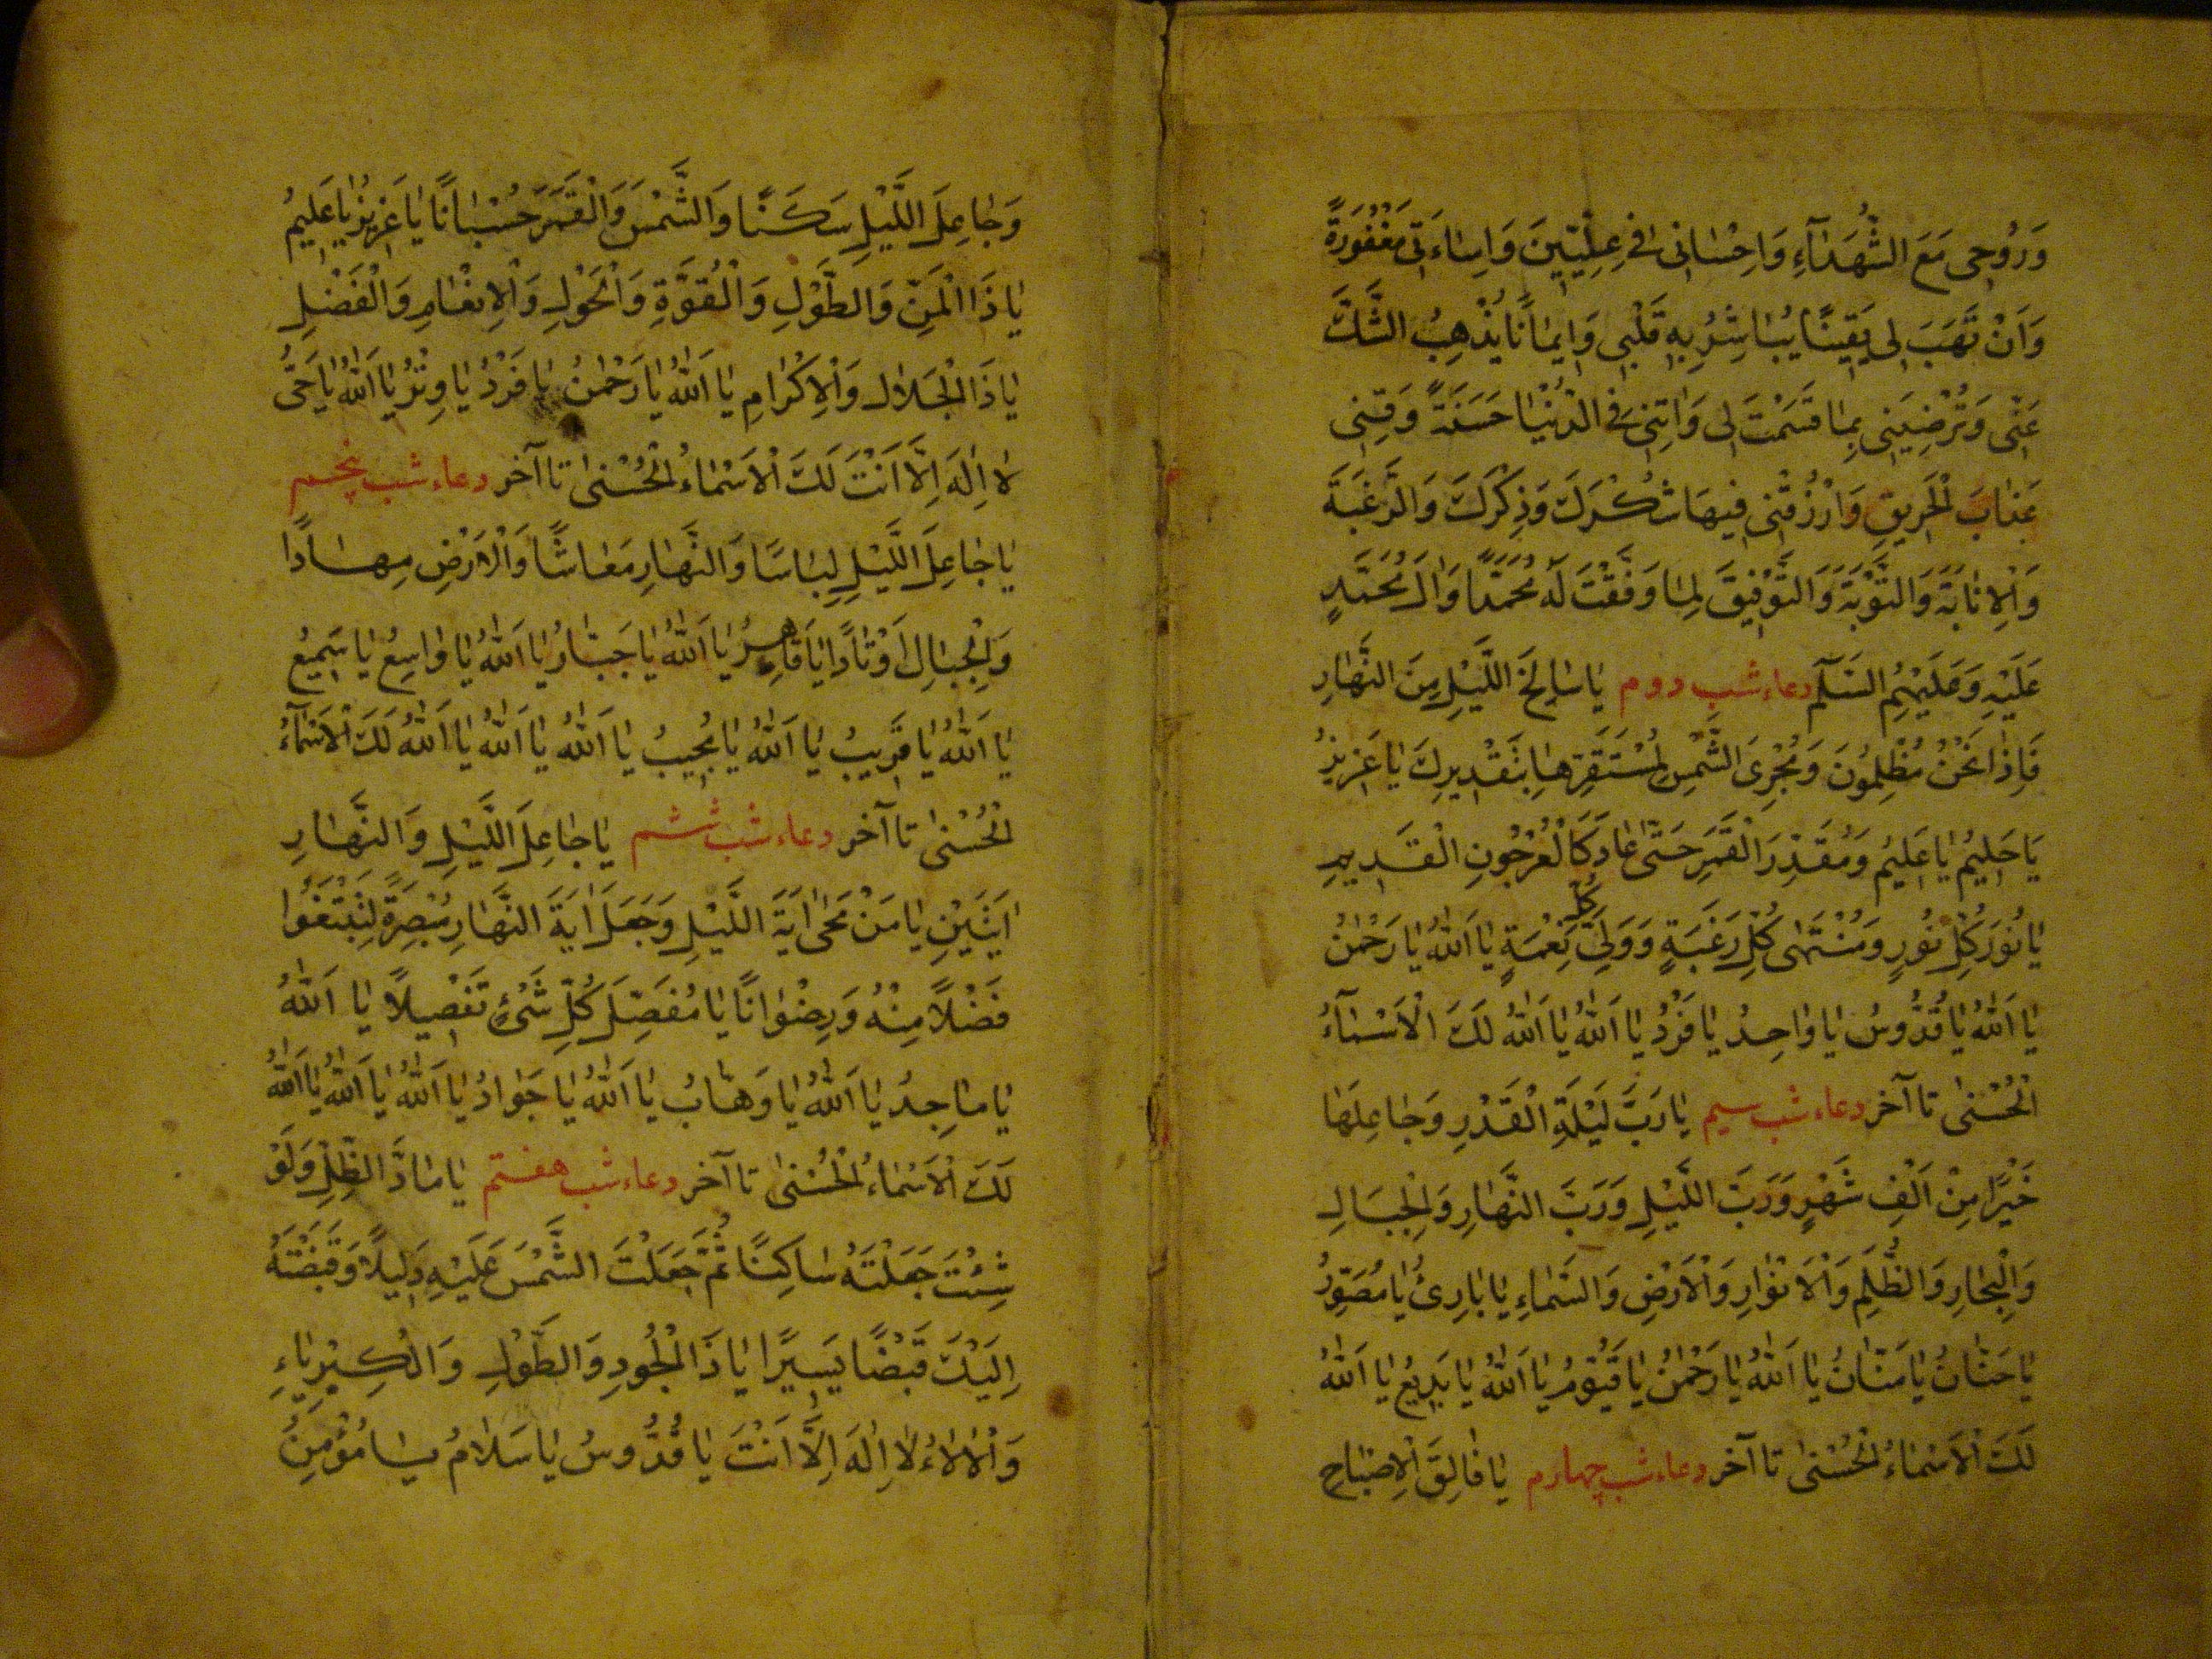 وَرُوحِی مَعَ الشُّهَدَآءِ وَاِحْسٰانِی فِی عِلِّیّٖینَ وَاِسٰاءَتِی مَغْفُورَةً
وَاَنْ تَهَبَ لِی یَقِینًا یُبٰاشِرُ بِهِ قَلْبِی وَاِیمٰانًا یُذْهِبُ الشَّكَّ
عَنِّی وَتُرْضِیَنِی بِمٰا قَسَمْتَ لِی وَاٰتِنِی فِی الدُّنْیٰا حَسَنَةً وَقِنِی
عَذٰابَ الْحَرِیقِ وَارْزُقْنِی فِیهَا شُكْرَكَ وَذِكْرَكَ وَالرَّغْبَةَ
وَالْاِنٰابَةَ وَالتَّوْبَةَ وَالتَّوْفِیقَ لِمٰا وَفَّقْتَ لَهُ مُحَمَّدًا وَاٰلَ مُحَمَّدٍ
عَلَیْهِ وَعَلَیْهِمُ السَّلَم دعاء شب دوم یٰا سٰالِخَ اللَّیْلِ مِنَ النَّهٰارِ
فَاِذٰا نَحْنُ مُظْلِمُونَ وَمُجْرِیَ الشَّمْسِ لِمُسْتَقَرِّهٰا بِتَقْدِیرِكَ یٰا عَزِیزُ
یٰا حَلِیمُ یٰا عَلِیمُ وَمُقَدِّرَ الْقَمَرِ حَتّٰی عٰادَ كَالْعُرْجُونِ الْقَدِیمِ
یٰا نُورَ كُلِّ نُورٍ وَمُنْتَهٰی كُلِّ رَغْبَةٍ وَوَلِیَّ كُلِّ نِعْمَةٍ یٰا اَللّٰهُ یٰا رَحْمٰنُ
یٰا اَللّٰهُ یٰا قُدُّوسُ یٰا وٰاحِدُ یٰا فَرْدُ یٰا اَللّٰهُ یٰا اَللّٰهُ لَكَ الْاَسْمٰآءُ
الْحُسْنٰی تا آخر دعاء شب سیم یٰا رَبَّ لَیْلَةِ الْقَدْرِ وَجٰاعِلَهٰا
خَیْرًا مِنْ اَلْفِ شَهْرٍ وَرَبَّ اللَّیْلِ وَرَبَّ النَّهٰارِ وَالْجِبَالِ
وَالْبِحٰارِ وَالظُّلَمِ وَالْاَنْوٰارِ وَالْاَرْضِ وَالسَّمٰاءِ یٰا بٰارِئُ یٰا مُصَوِّرُ
یٰا حَنّٰانُ یٰا مَنّٰانُ یٰا اَللّٰهُ یٰا رَحْمٰنُ یٰا قَیُّومُ یٰا اَللّٰهُ یٰا بَدِیعُ یٰا اَللّٰهُ
لَكَ الْاَسْمٰاءُ الْحُسْنٰی تا آخر دعاء شب چهارم یٰا فٰالِقَ الْاِصْبٰاحِ
وَجٰاعِلَ اللَّیْلِ سَكَنًا وَالشَّمْسَ وَالْقَمَرَ حُسْبٰانًا یٰا عَزِیزُ یٰا عَلِیمُ
یٰا ذَا الْمَنِّ وَالطَّوْلِ وَالْقُوَّةِ وَالْحَوْلِ وَالْاِنْعٰامِ وَالْفَضْلِ
یٰا ذَا الْجَلٰالِ وَالْاِكْرٰامِ یٰا اَللّٰهُ یٰا رَحْمٰنُ یٰا فَرْدُ یٰا وِتْرُ یٰا اَللّٰهُ یٰا حَیُّ
لٰا اِلٰهَ اِلَّا اَنْتَ لَكَ الْاَسْمٰاءُ الْحُسْنٰی تا آخر دعاء شب پنجم
یٰا جٰاعِلَ اللَّیْلِ لِبٰاسًا وَالنَّهٰارِ مَعٰاشًا وَالْاَرْضِ مِهٰادًا
وَالْجِبٰالِ اَوْتٰادًا یٰا قَاهِرُ یٰا اَللّٰهُ یٰا جَبّٰارُ یٰا اَللّٰهُ یٰا وٰاسِعُ یٰا سَمِیعُ
یٰا اَللّٰهُ یٰا قَرِیبُ یٰا اَللّٰهُ یٰا مُجِیبُ یٰا اَللّٰهُ یٰا اَللّٰهُ یٰا اَللّٰهُ لَكَ الْاَسْمٰآءُ
الْحُسْنٰی تا آخر دعاء شب ششم یٰا جٰاعِلَ اللَّیْلِ وَالنَّهٰارِ
اٰیَتَیْنِ یٰا مَنْ مَحٰی اٰیَةَ اللَّیْلِ وَجَعَلَ اٰیَةَ النَّهٰارِ مُبْصِرَةً لِتَبْتَغُوا
فَضْلًا مِنْهُ وَرِضْوٰانًا یٰا مُفَصِّلَ كُلِّ شَیْءٍ تَفْصِیلًا یٰا اَللّٰهُ
یٰا مٰاجِدُ یٰا اَللّٰهُ یٰا وَهّٰابُ یٰا اَللّٰهُ یٰا جَوٰادُ یٰا اَللّٰهُ یٰا اَللّٰهُ یٰا اَللّٰهُ
لَكَ الْاَسْمٰاءُ الْحُسْنٰی تا آخر دعاء شب هفتم یٰا مٰادَّ الظِّلِّ وَلَوْ
شِئْتَ جَعَلْتَهُ سٰاكِنًا ثُمَّ جَعَلْتَ الشَّمْسَ عَلَیْهِ دَلِیلًا وَقَبَضْتَهُ
اِلَیْكَ قَبْضًا یَسِیرًا یٰا ذَا الْجُودِ وَالطَّوْلِ وَالْكِبْرِیٰاءِ
وَالْاٰلٰاءُ لٰا اِلٰهَ اِلَّا اَنْتَ یٰا قُدُّوسُ یٰا سَلٰامُ یٰا مُؤْمِنُ